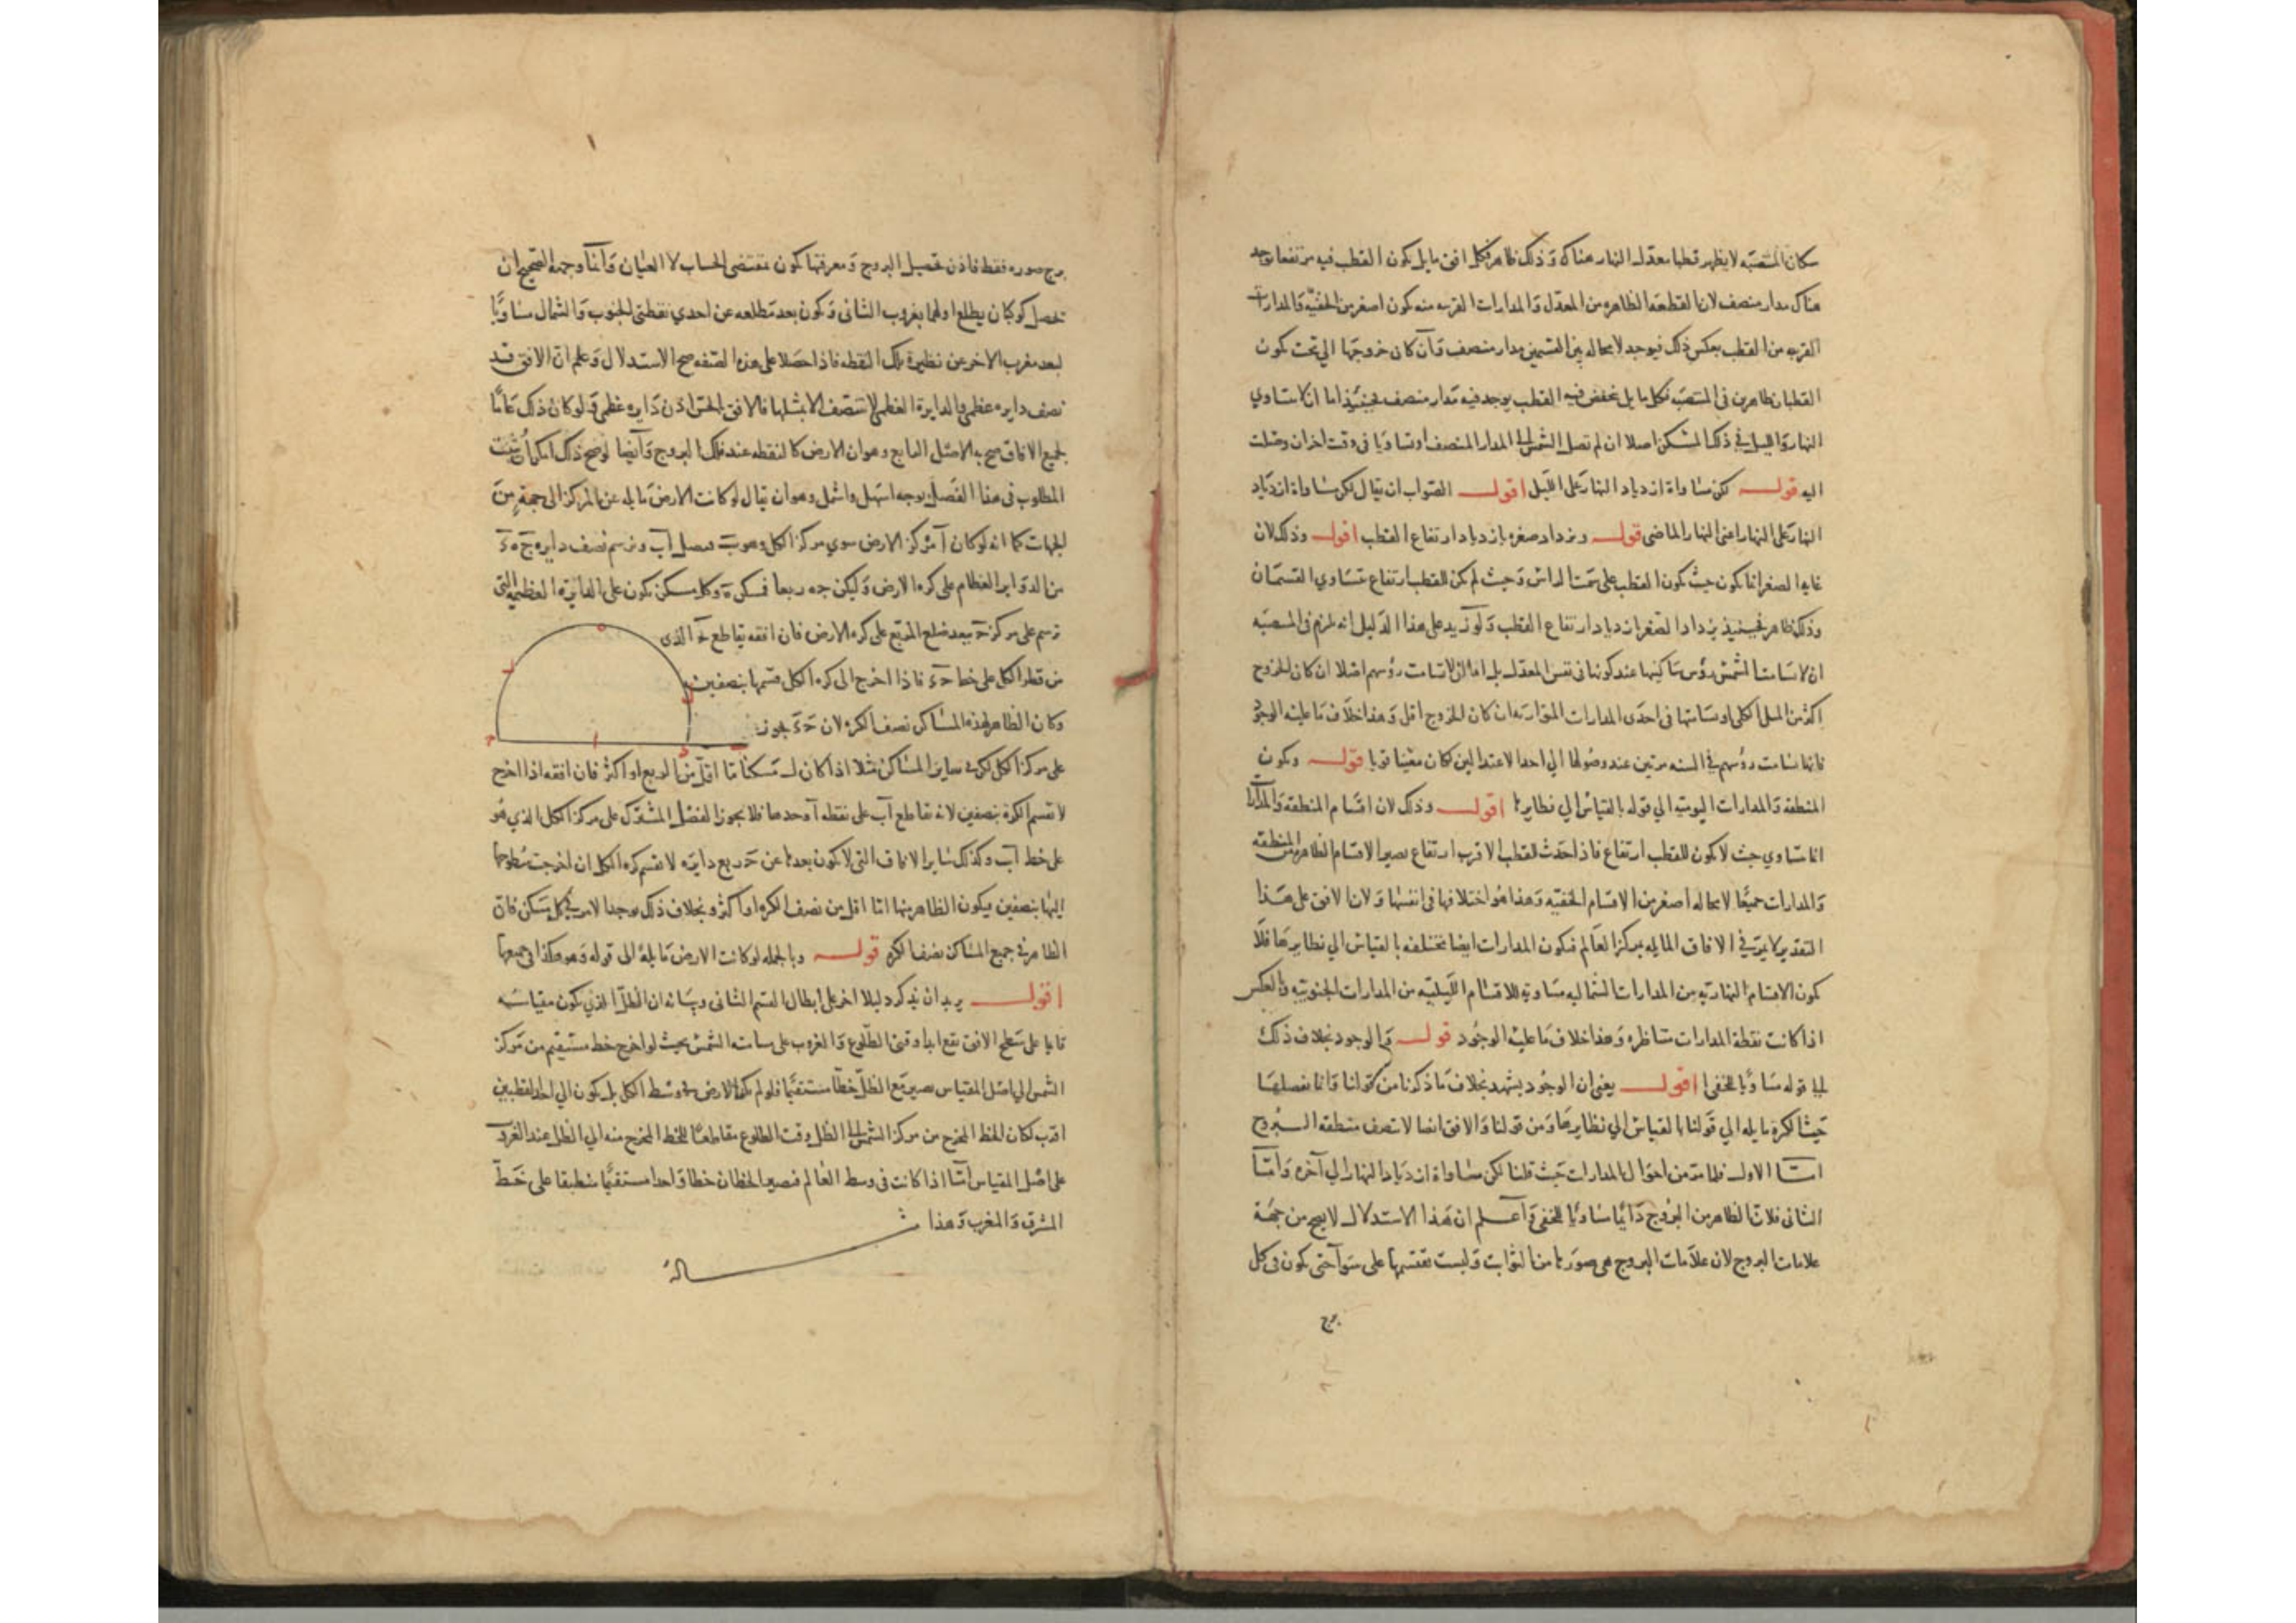 سكان المنتصبه لا يظهر قطبا معدل النهار هناك وذلك ظاهر فكل افق مايل يكون القطب فيه مرتفعا يوجد
هناك مدار منصف لان القطعه الظاهره من المعدل والمدارات القريبه منه يكون اصغر من الخفيه والمدارات
القريبه من القطب بعكس ذلك فيوجد لا محاله بين القسمين مدار منصف وان كان خروجها الى تحت يكون
القطبان ظاهرين فى المنتصبه فكل مايل ينخفض فيه القطب يوجد فيه مدار منصف فحينئذ اما ان لا يتساوي
النهار والليل في ذلك المسكن اصلا ان لم تصل الشمس الى المدار المنصف او يتساويا فى وقت اخر ان وصلت
اليه قوله لكن مساواة ازدياد النهار على الليل اقول الصواب ان يقال لكن مساواة ازدياد
النهار على النهار اعنى النهار الماضى قوله ويزداد صغره بازدياد ارتفاع القطب اقول وذلك لان
غايه الصغر انما يكون حيث يكون القطب على سمت الراس وحيث لم يكن للقطب ارتفاع يتساوي القسمان
وذلك ظاهر فحينئذ يزداد الصغر بازدياد ارتفاع القطب ولو زيد على هذا الدليل انه يلزم فى المنتصبه
ان لا تسامت الشمس رؤس ساكنيها عند كونها فى نفس المعدل بل اما ان لا تسامت رؤسهم اصلا ان كان الخروج
اكثر من الميل الكلى او تسامتها فى احدى المدارات المتوازيه ان كان الخروج اقل وهذا خلاف ما عليه الوجود
فانها تسامت رؤسهم في السنه مرتين عند وصولها الى احد الاعتدالين لكان مغنيا قويا قوله ويكون
المنطقه والمدارات اليوميه الي قوله بالقياس الي نظايرها اقول وذلك لان اقسام المنطقه والمدارات
انما يتساوي حيث لا يكون للقطب ارتفاع فاذا حدث للقطب الاقرب ارتفاع يصير الاقسام الظاهره من المنطقه
والمدارات جميعا لا محاله اصغر من الاقسام الخفيه وهذا هو اختلافها فى انفسها ولان الافق على هذا
التقدير لا يمر في الافاق المايله بمركز العالم فيكون المدارات ايضا مختلفه بالقياس الي نظايرها فلا
يكون الاقسام النهاريه من المدارات الشماليه مساويه للاقسام الليليه من المدارات الجنوبيه وبالعكس
اذا كانت نقطة المدارات متناظره وهذا خلاف ما عليه الوجود قوله والوجود بخلاف ذلك
الى قوله مساويا للخفى اقول يعنى ان الوجود يشهد بخلاف ما ذكرنا من قولنا فانا نفصلها
حيث الكرة مايله الي قولنا بالقياس الي نظايرها ومن قولنا والافق ايضا لا تنصف منطقه البروج
اما الاول فلما مر من احوال المدارات حيث قلنا لكن مساواة ازدياد النهار الي آخره واما
الثانى فلان الظاهر من البروج دايما مساويا للخفى واعلم ان هذا الاستدلال لا يصح من جهة
علامات البروج لان علامات البروج هى صورها من الثوابت وليست تقتسمها على سوآ حتى يكون فى كل
برج
برج صوره فقط فاذن تحصيل البروج ومعرفتها يكون بمقتضى الحساب لا العيان وانما وجهه الصحيح ان
نحصل كوكبان يطلع اولهما بغروب الثانى ويكون بعد مطلعه عن احدي نقطتى الجنوب والشمال مساويا
لبعد مغرب الاخر عن نظيرة تلك النقطه فاذا حصلا على هذه الصفه صح الاستدلال وعلم ان الافق قد
نصف دايره عظمى والدايرة العظمى لا تنتصف الا بمثلها فالافق الحسى اذن دايره عظمى ولو كان ذلك عاما
لجميع الافاق صح به الاصل الرابع وهو ان الارض كالنقطه عند فلك البروج وايضا لوضح ذلك امكن ان يثبت
المطلوب فى هذا الفصل بوجه اسهل واشمل وهو ان يقال لو كانت الارض مايله عن المركز الى جهة من
الجهات كما انه لو كان آ مركز الارض سوي مركز الكل وهو ب فنصل آب ونرسم نصف دايره ج ه د
من الدواير العظام على كره الارض وليكن ج ه ربعا فمسكن ه وكل مسكن يكون على الدايره العظيمه التى
ترسم على مركز ج ببعد ضلع المربع على كره الارض فان افقه يقاطع ج آ الذى
من قطر الكل على خط ج د فاذا اخرج الى كره الكل قسمها بنصفين
وكان الظاهر لهذه المساكن نصف الكره لان ج د يجوز
على مركز الكل لكن في ساير المساكن مثلا اذا كان ل مسكنا ما اقل من الربع او اكثر فان افقه اذا اخرج
لا تقسم الكرة بنصفين لانه يقاطع آب على نقطه آ وحدها فلا يجوز الفصل المشترك على مركز الكل الذي هو
على خط آب وكذلك ساير الافاق التى لا يكون بعدها عن ج ربع دايره لا يقسم كره الكل ان اخرجت سطوحها
اليها بنصفين فيكون الظاهر منها اما اقل من نصف الكره او اكثر وبخلاف ذلك يوجد الامر في كل مسكن فان
الظاهر في جميع المساكن نصف الكره قوله وبالجمله لو كانت الارض مايلة الى قوله وهو هكذا فى جميعها
اقول يريد ان يذكر دليلا اخر على ابطال القسم الثانى وبيانه ان الظل الذي يكون مقياسه
قايما على سطح الافق يقع ابدا وقتى الطلوع والغروب على مسامته الشمس بحيث لو اخرج خط مستقيم من مركز
الشمس الى اصل المقياس يصير مع الظل خطا مستقيما فلو لم يكن الارض في وسط الكل بل يكون الى احد القطبين
اقرب لكان الخط المخرج من مركز الشمس الى الظل وقت الطلوع مقاطعا للخط المخرج منه الي الظل عند الغروب
على اصل المقياس اما اذا كانت فى وسط العالم فيصير الخطان خطا واحدا مستقيما منطبقا على خط
المشرق والمغرب وهذا